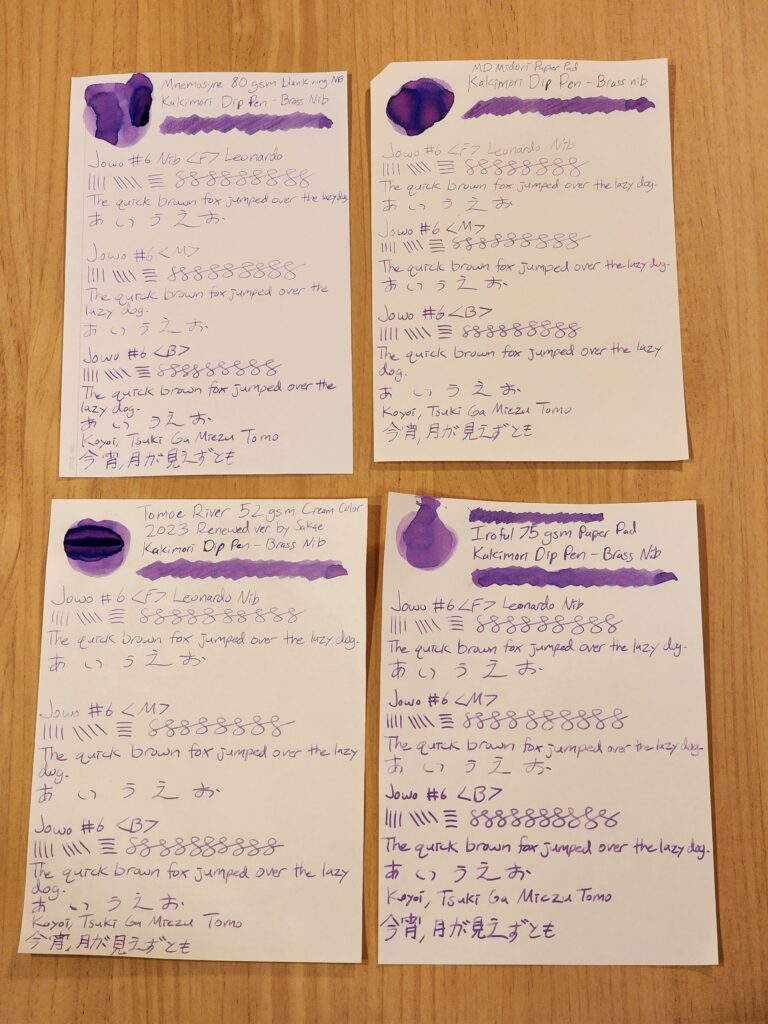 Mnemosyne 80 gsm blank ring NB
Kakimori Dip Pen - Brass Nib
Jowo #6 Nib <F> Leonardo
The quick brown fox jumped over the lazy dog.
あ い う え お
Jowo #6 <M>
The quick brown fox jumped over the
lazy dog.
あ い う え お
Jowo #6 <B>
The quick brown fox jumped over the
lazy dog.
あ い う え お
Koyoi, Tsuki Ga Miezu Tomo
今宵,月が見えずとも
MD Midori Paper Pad
Kakimori Dip Pen - Brass nib
Jowo #6 <F> Leonardo Nib
The quick brown fox jumped over the lazy dog.
あ い う え お
Jowo #6 <M>
The quick brown fox jumped over the lazy dog.
あ い う え お
Jowo #6 <B>
The quick brown fox jumped over the lazy
dog.
あ い う え お
Koyoi, Tsuki Ga Miezu Tomo
今宵,月が見えずとも
Tomoe River 52 gsm Cream Color
2023 Renewed ver. by Sakae
Kakimori Dip Pen - Brass Nib
Jowo #6 <F> Leonardo Nib
The quick brown fox jumped over the lazy dog.
あ い う え お
Jowo #6 <M>
The quick brown fox jumped over the lazy
dog.
あ い う え お
Jowo #6 <B>
The quick brown fox jumped over the lazy
dog.
あ い う え お
Koyoi, Tsuki Ga Miezu Tomo
今宵,月が見えずとも
Iroful 75 gsm Paper Pad
Kakimori Dip Pen - Brass Nib
Jowo #6 <F> Leonardo Nib
The quick brown fox jumped over the lazy dog.
あ い う え お
Jowo #6 <M>
The quick brown fox jumped over the lazy dog.
あ い う え お
Jowo #6 <B>
The quick brown fox jumped over the lazy dog.
あ い う え お
Koyoi, Tsuki Ga Miezu Tomo
今宵,月が見えずとも